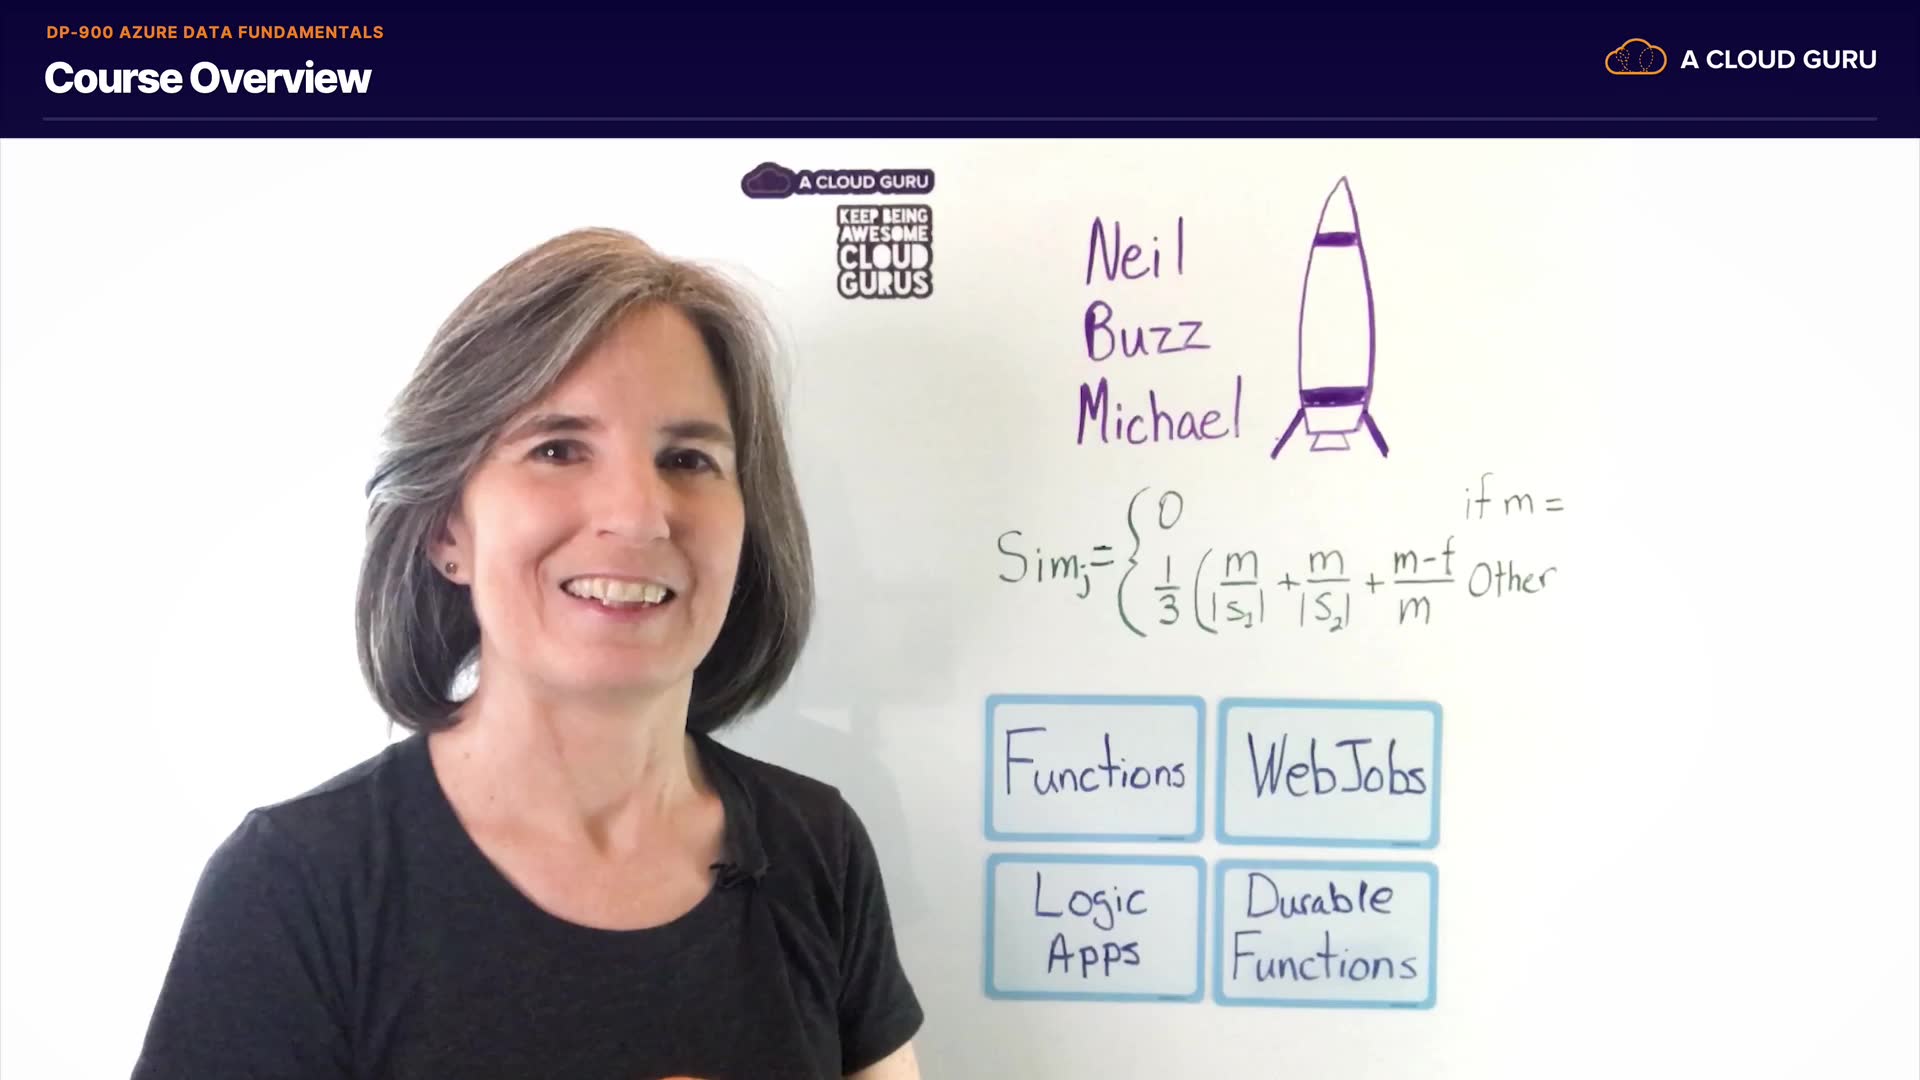 DP-900 AZURE DATA FUNDAMENTALS
Course Overview
A CLOUD GURU
A CLOUD GURU
KEEP BEING
AWESOME
CLOUD
GURUS
Neil
Buzz
Michael
Simj = { 0 if m =
1/3 ( m/|S1| + m/|S2| + m-t/m Other
Functions
WebJobs
Logic
Apps
Durable
Functions